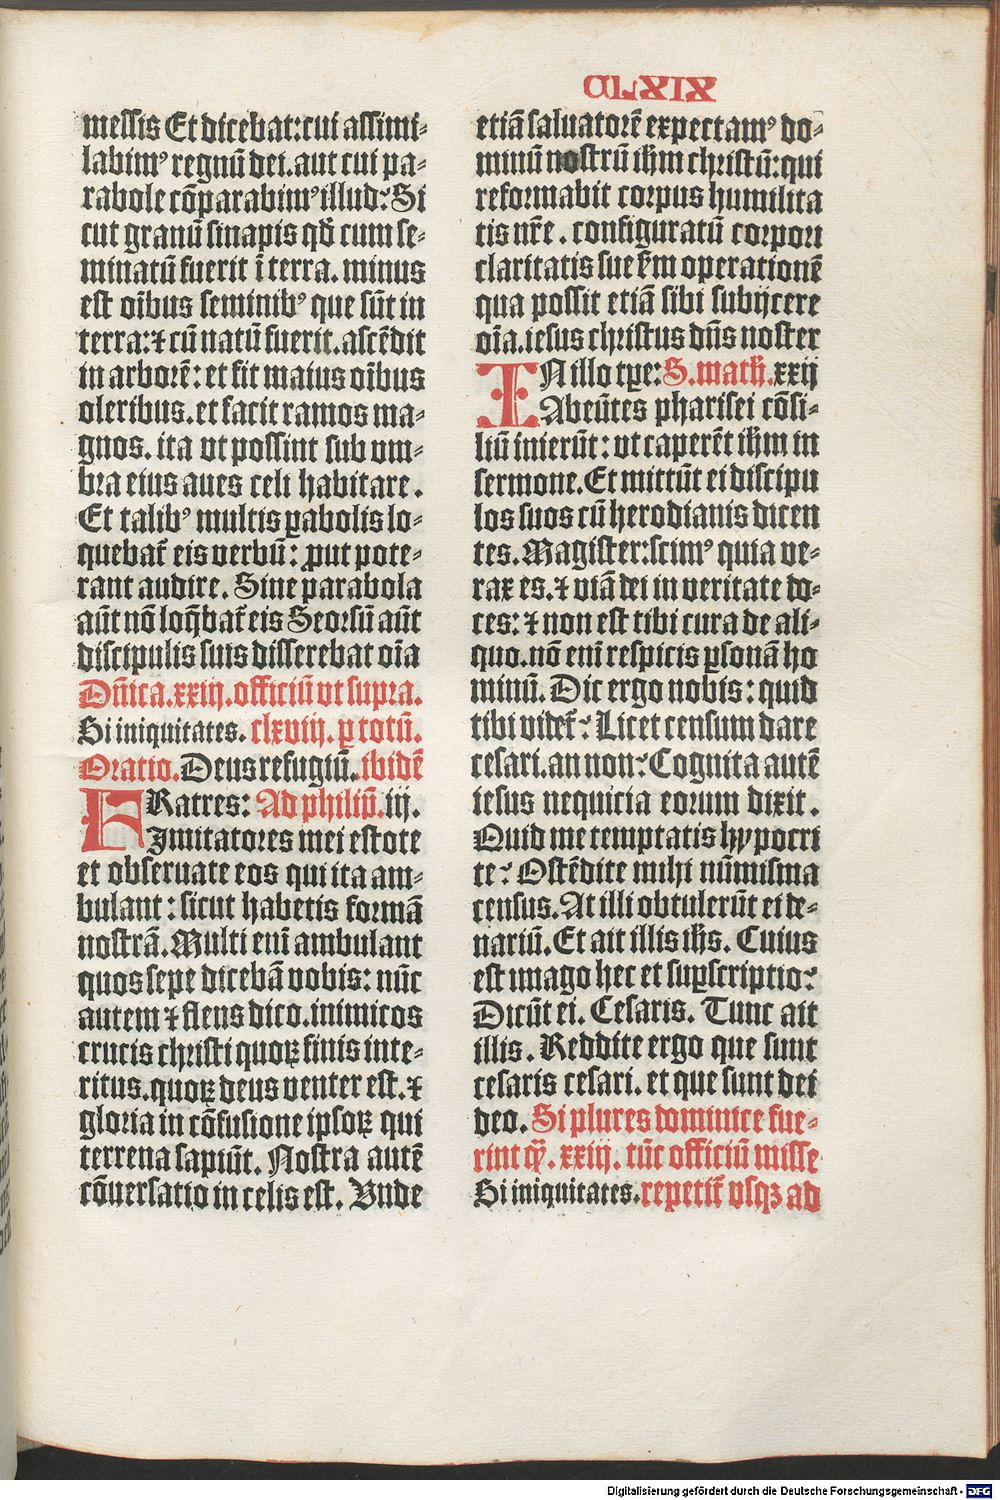 CLXIX
messis Et dicebat:cui assimi⸗
labimꝰ regnū dei.aut cui pa⸗
rabole cōparabimꝰ illud? Si
cut granū sinapis qđ cum se⸗
minatū fuerit ī terra. minus
est oībus seminibꝰ que sūt in
terra:⁊ cū natū fuerit.ascēdit
in arborē: et fit maius oībus
oleribus.et facit ramos ma⸗
gnos. ita vt possint sub vm⸗
bra eius aues celi habitare.
Et talibꝰ multis ꝑabolis lo⸗
quebat̄ eis verbū: ꝓut pote⸗
rant audire. Sine parabola
aūt nō loq̄bat̄ eis Seorsū aūt
discipulis suis disserebat oīa
Dn̄ica.xxiij.officiū vt supra.
Si iniquitates. clxviij. ꝑ totū.
Oratio. Deus refugiū. ibidē
FRatres: Ad philiṗ. iij.
Jmitatores mei estote
et obseruate eos qui ita am⸗
bulant: sicut habetis formā
nostrā. Multi enī ambulant
quos sepe dicebā vobis: nūc
autem ⁊ flens dico.inimicos
crucis christi quoꝝ finis inte⸗
ritus.quoꝝ deus venter est.⁊
gloria in cōfusione ipsoꝝ qui
terrena sapiūt. Nostra autē
cōuersatio in celis est. Vnde
etiā saluatorē expectamꝰ do⸗
minū nostrū ihm christū:qui
reformabit corpus humilita
tis nr̄e. configuratū corpori
claritatis sue fm̄ operationē
qua possit etiā sibi subijcere
oīa.iesus christus dn̄s noster
IN illo tꝑe: S. math̄. xxij
Abeūtes pharisei cōsi⸗
liū inierūt: vt caperēt ihm in
sermone. Et mittūt ei discipu
los suos cū herodianis dicen
tes. Magister:scimꝰ quia ve⸗
rax es. ⁊ viā dei in veritate do⸗
ces: ⁊ non est tibi cura de ali⸗
quo.nō enī respicis ꝑsonā ho
minū. Dic ergo nobis: quid
tibi videt̄? Licet censum dare
cesari.an non? Cognita autē
iesus nequicia eorum dixit.
Quid me temptatis hypocri
te? Ostēdite mihi nūmisma
census. At illi obtulerūt ei de⸗
nariū. Et ait illis ihs. Cuius
est imago hec et suꝑscriptio?
Dicūt ei. Cesaris. Tunc ait
illis. Reddite ergo que sunt
cesaris cesari. et que sunt dei
deo. Si plures dominice fue⸗
rint q̄. xxiij. tūc officiū misse
Si iniquitates. repetit̄ vsqꝫ ad
Digitalisierung gefördert durch die Deutsche Forschungsgemeinschaft - DFG